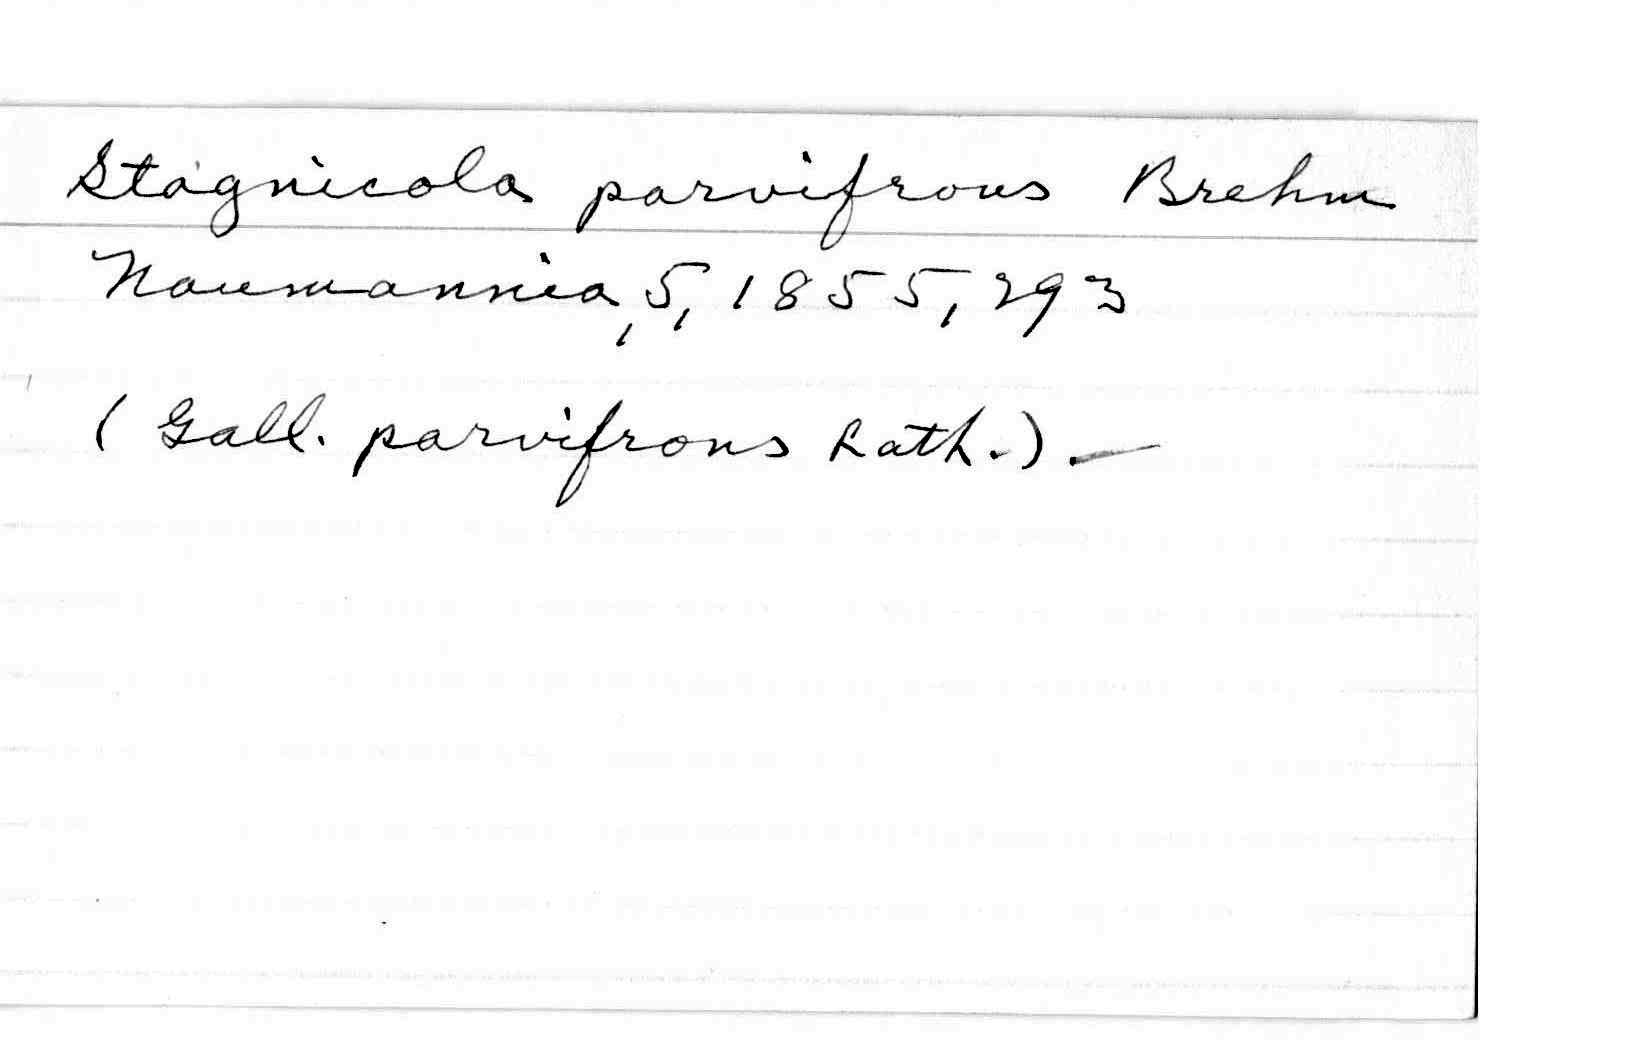 Stagnicola parvifrons Brehm
Naumannia, 5, 1855, 293
(Gall. parvifrons Rath.). —